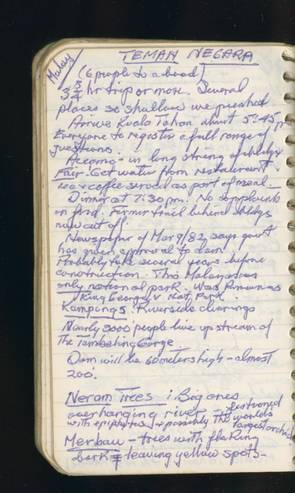 Malay
TEMAN NEGARA
(6 people to a boat)
3 3/4 hr trip or more. Several
places so shallow we pushed.
Arrive Kuala Tahan about 5:45 p
Everyone to register & full range of
questions.
Accomo - in long string of bldgs
Fair. Get water from restaurant -
tea & coffee served as part of meal -
Dinner at 7:30 pm. No complaints
on food. Former trail behind bldgs
now cut off.
Newspaper of Mar 9/82 says gov't
has given approval to dam.
Probably take several years before
construction. This Malaysias
only national park. Was known as
King George V Nat. Park.
Kampongs. Riverside clearings
Nearly 3000 people live upstream of
The Tembeling Gorge
Dam will be 60 meters high - almost
200'.
Neram Trees : Big ones
overhanging river - festooned
with epiphytes & possibly the worlds
largest orchid
Merbau - trees with flaking
bark leaving yellow spots -